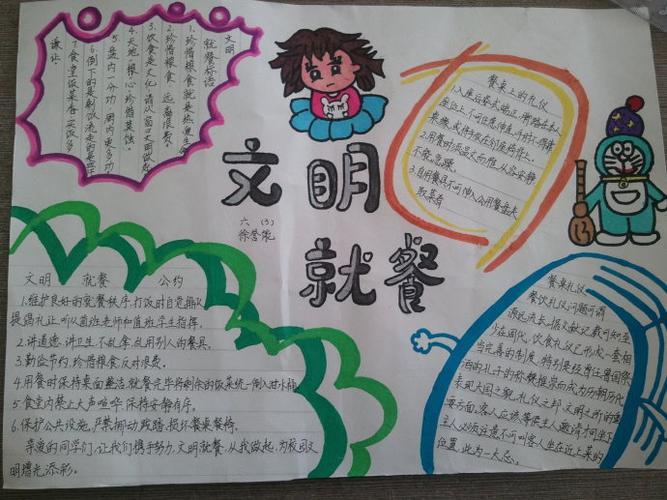 文明
就餐标语
1.珍惜粮食就是热爱生
2.珍惜粮食 远离浪费
3.饮食是文化 请从窗口文明做起
4.天地粮心 珍惜莫蚀。
5.盘内一分功 周内更多功
6.倒下的是剩饭流走的是
7.食堂饭菜香
谦让。
文明
就餐
六(3)
餐桌上的礼仪
1.入座后姿式端正,脚踏在本人
座位下,不可任意伸直,手肘不得靠
桌缘,或将手放在邻座椅背上。
2.用餐时须温文而雅,从容安静,
不能急躁。
3.自用餐具不可伸入公用餐盘夹
取菜肴
文明 就餐 公约
1.维护良好的就餐秩序,打饭时自觉排队
提倡礼让,听从值班老师和值班学生指挥。
2.讲道德、讲卫生、不乱拿、乱用别人的餐具。
3.勤俭节约,珍惜粮食,反对浪费。
4.用餐时保持桌面整洁,就餐完毕将剩余的饭菜统一倒入泔水桶
5.食堂内禁止大声喧哗,保持安静有序。
6.保护公共设施,严禁挪动、践踏、损坏餐桌餐椅。
亲爱的同学们,让我们携手努力,文明就餐,从我做起,为校园文
明增光添彩。
餐桌礼仪
餐饮礼仪问题可谓
源远流长。据文献记载可知,至
少在周代,饮食礼仪已形成一套相
当完善的制度,特别是经曾任鲁国祭
酒的孔子的称赞推崇而成为历朝历代
表现大国之貌、礼仪之邦、文明之所的重
要方面。客人应该等候主人邀请才可坐下
主人必须注意不可叫客人坐在近上菜的
位置,此为一大忌。